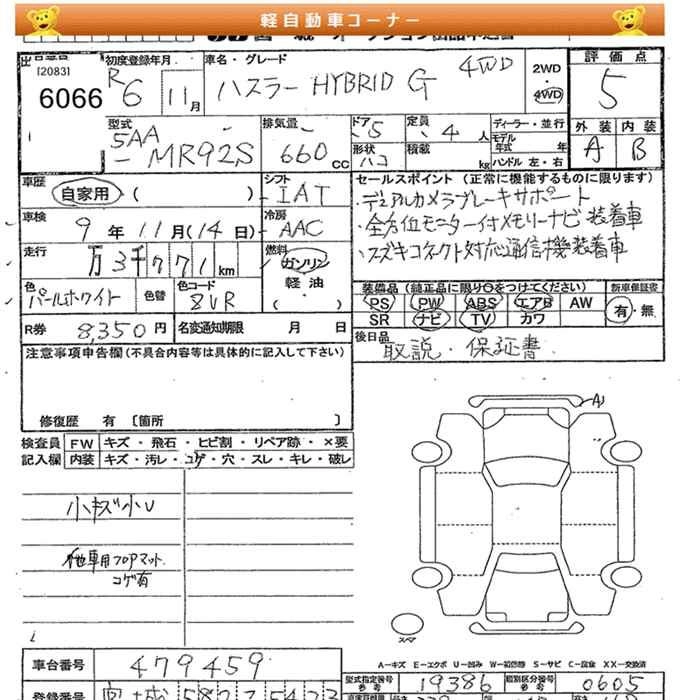 軽自動車コーナー
[2083]
6066
初度登録年月
R6 11月
車名・グレード
ハスラー HYBRID G 4WD
2WD
・
4WD
評価点
5
外装 内装
A B
型式
5AA
- MR92S
排気量
660 CC
ドア 5
形状 ハコ
定員 4 人
積載 kg
ディーラー・並行
モデル年式 年
ハンドル 左・右
車歴
自家用・( )
シフト
IAT
車検
9 年 11 月 (14 日)
冷房
AAC
走行
万3千771km
燃料
ガソリン
軽油
( )
色
パールホワイト
色替
色コード
ZVR
R券 8,350 円
名変通知期限 月 日
セールスポイント (正常に機能するものに限ります)
・デュアルカメラブレーキサポート
・全方位モニター付メモリーナビ装着車
・スズキコネクト対応通信機装着車
装備品 (純正品に限り○をつけてください)
PS PW ABS エアB AW
SR ナビ TV カワ
新車保証書
有・無
後日品
取説・保証書
注意事項申告欄 (不具合内容等は具体的に記入して下さい)
修復歴 有 〔箇所 〕
検査員記入欄
FW キズ・飛石・ヒビ割・リペア跡・×要
内装 キズ・汚レ・コゲ・穴・スレ・キレ・破レ
小キズ小U
他車用フロアマット
コゲ有
A1
スペア
A-キズ E-エクボ U-凹み W-補修跡 S-サビ C-腐食 XX-交換済
車台番号 479459
型式指定番号 参考 19386
類別区分番号 参考 0605
登録番号